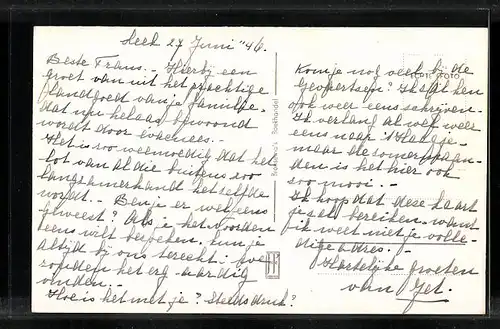 Leek 27 Juni "46.
Beste Frans.. Hierbij een
groet van uit het prachtige
landgoed van je familie.
dat nu helaas bewoond
wordt door evacuees.-
Het is zoo weemoedig dat het
lot van al die buitens zoo
langzamerhand hetzelfde
wordt.- Ben je er wel eens
geweest? Als je het voorden
eens wilt bezoeken, kun je
altijd bij ons terecht! Zoe
zouden het erg aardig
vinden.-
Hoe is het met je? Steeds druk?
Kom je nog veel bij de
Gevaertsen? Ik zal hen
ook weer eens schrijven.-
Ik verlang al weer
eens naar 't Haagje.-
maar de zomermaan-
den is het hier ook
zoo mooi.-
Ik hoop dat deze kaart
je zal bereiken, want
ik weet niet je volle-
dige adres.-
Hartelijke groeten
van Jet.
Boekhandel
FOTO